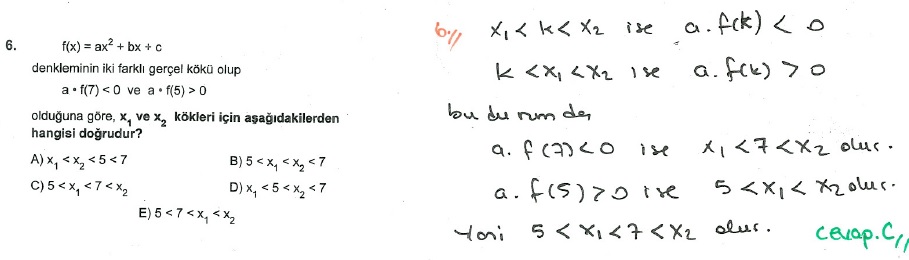 6. f(x) = ax² + bx + c
denkleminin iki farklı gerçel kökü olup
a • f(7) < 0 ve a • f(5) > 0
olduğuna göre, x₁ ve x₂ kökleri için aşağıdakilerden
hangisi doğrudur?
A) x₁ < x₂ < 5 < 7 B) 5 < x₁ < x₂ < 7
C) 5 < x₁ < 7 < x₂ D) x₁ < 5 < x₂ < 7
E) 5 < 7 < x₁ < x₂
6.// x₁ < k < x₂ ise a.f(k) < 0
k < x₁ < x₂ ise a.f(k) > 0
bu durumda
a.f(7) < 0 ise x₁ < 7 < x₂ olur.
a.f(5) > 0 ise 5 < x₁ < x₂ olur.
Yani 5 < x₁ < 7 < x₂ olur. cevap.C//